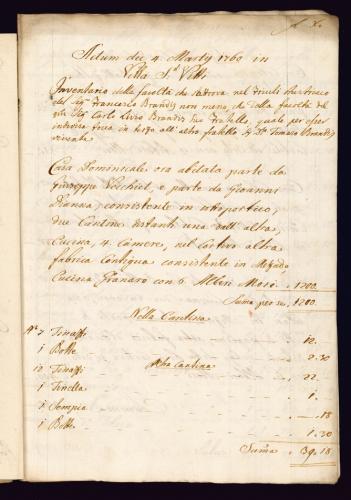 Actum die 4. Martij 1760 in
Villa S.t Vitto
Inventario della facoltà che si trova nel Friuli
del Sig.r Francesco Brandis non meno, che della facoltà del
Sig. Carlo Livio Brandis suo Fratello, quale per esser
indivisa in terzo all'altro fratello Tomaso Brandis
Casa Dominicale ora abitata parte da
Giuseppe Vecchiet, e parte da Giovanni
Pianna, consistente in un portico,
due Cantine distanti una dall'altra,
Cucina, 4. Camere, nel Cortivo altra
fabrica Contigua consistente in
Cucina Granaro con 6. Albori Mori . 1200.
Suma per se . 1200.
Nella Cantina
N.o 7 Tinazzi 12.
1 Botte 2.30
Altra Cantina
12 Tinazzi 22.
1 Tinella 1.
1 .18
1 Botte 1.30
Suma . 39.18